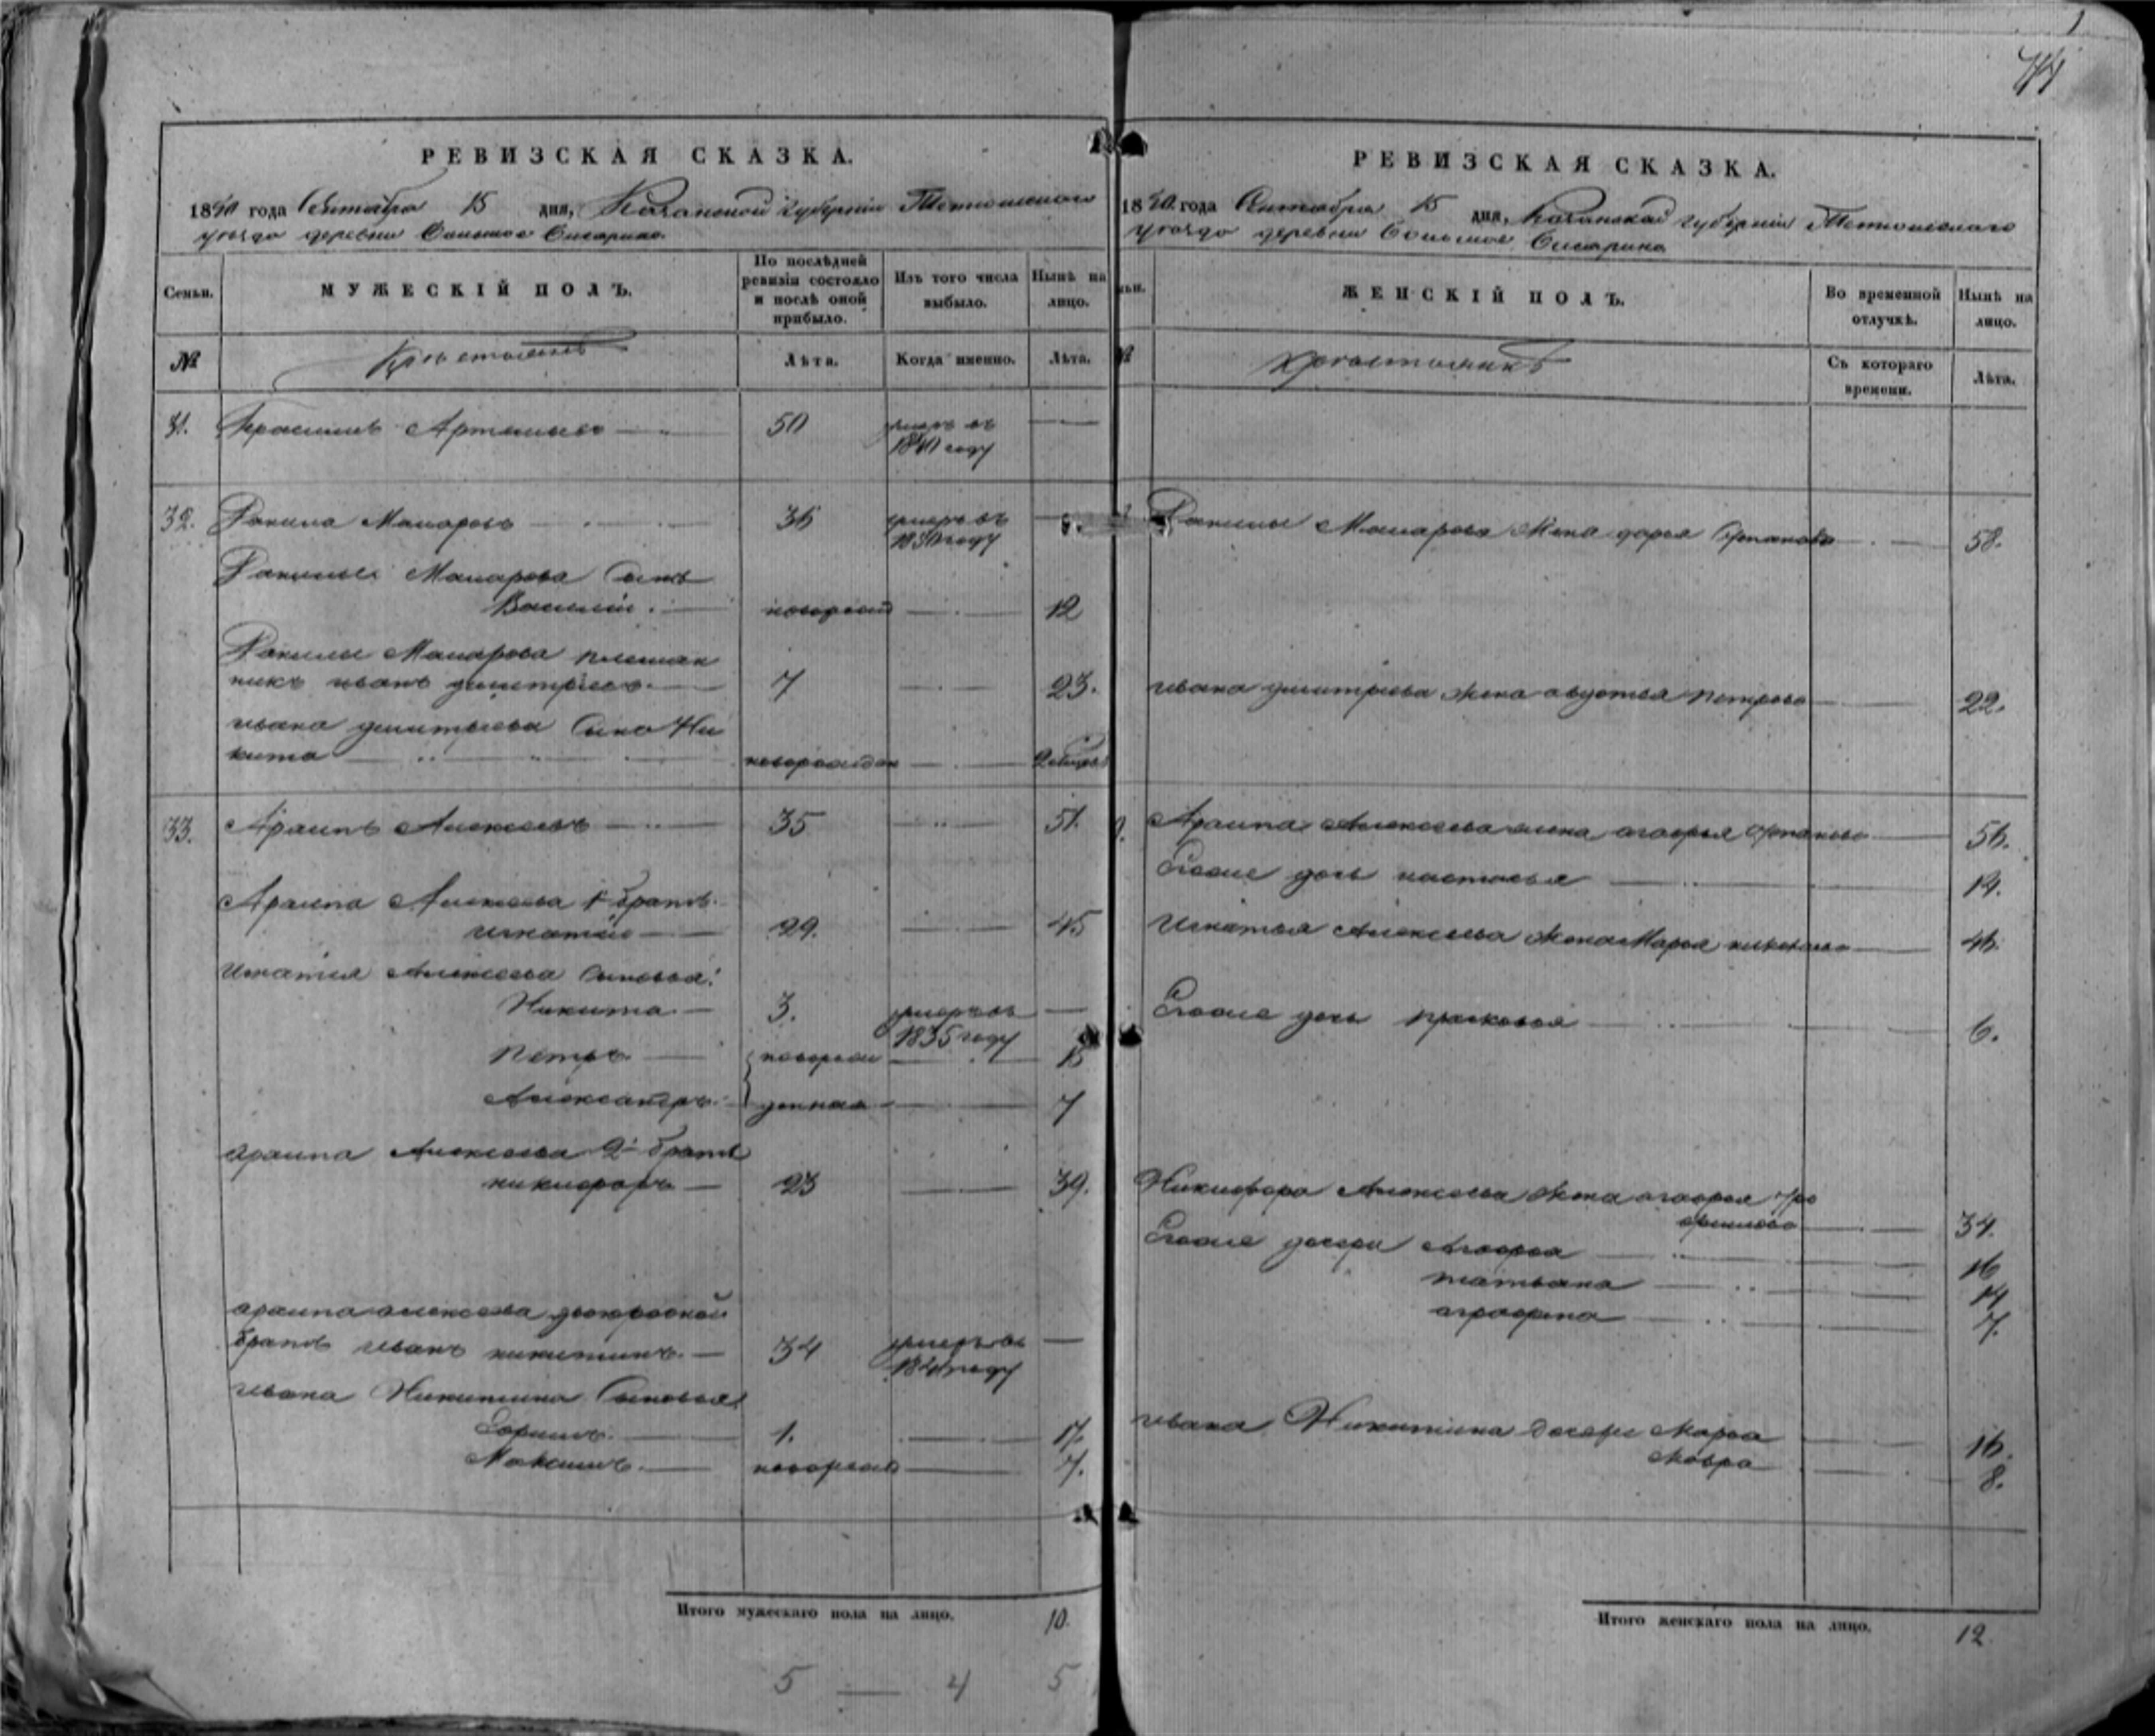 44
РЕВИЗСКАЯ СКАЗКА.
1850 года Сентября 15 дня, Казанской губерніи Тетюшскаго
уезда деревни
Семьи.
МУЖЕСКІЙ ПОЛЪ.
По послѣдней ревизіи состояло и послѣ оной прибыло.
Изъ того числа выбыло.
Нынѣ на лицо.
№
Лѣта.
Когда именно.
Лѣта.
31. Артемьевъ 50 умеръ въ
1840 году
32. Данила Макаровъ 36 умеръ въ
Данилы Макарова Сынъ
Василій новорожд 12
Данилы Макарова племян
никъ иванъ дмитріевъ 7 23.
ивана дмитріева Сынъ Ни
кита новорожден
33. Архипъ Алексеевъ 35 51.
Архипа Алексеева 1 братъ
игнатій 29. 45
Игнатия Алексеева Сыновья:
Никита 3. умеръ въ
1835 году
Петръ новорож 15
Александръ денная 7
архипа Алексеева 2й братъ
никифоръ 23 39.
архипа алексеева двоюродной
братъ иванъ никитинъ 34 умеръ въ
ивана Никитина Сыновья
Ефимъ 1. 17.
Максимъ новорожд 7.
Итого мужескаго пола на лицо. 10.
5 — 4 5
РЕВИЗСКАЯ СКАЗКА.
1850 года Сентября 15 дня, Казанской губерніи Тетюшскаго
уезда деревни
ЖЕНСКІЙ ПОЛЪ.
Во временной отлучкѣ.
Нынѣ на лицо.
№
Съ котораго времени.
Лѣта.
Данилы Макарова Жена дарья 58.
ивана дмитріева жена авдотья петрова 22.
Архипа Алексеева жена агафья 56.
Его дочь настасья 14.
Игнатья Алексеева жена Марья 46.
Его дочь прасковья 6.
Никифора Алексеева жена агафья
34.
Его дочери Агафья 16
татьяна 14
аграфена 7.
ивана Никитина дочери Марфа 16.
Мавра 8.
Итого женскаго пола на лицо. 12.